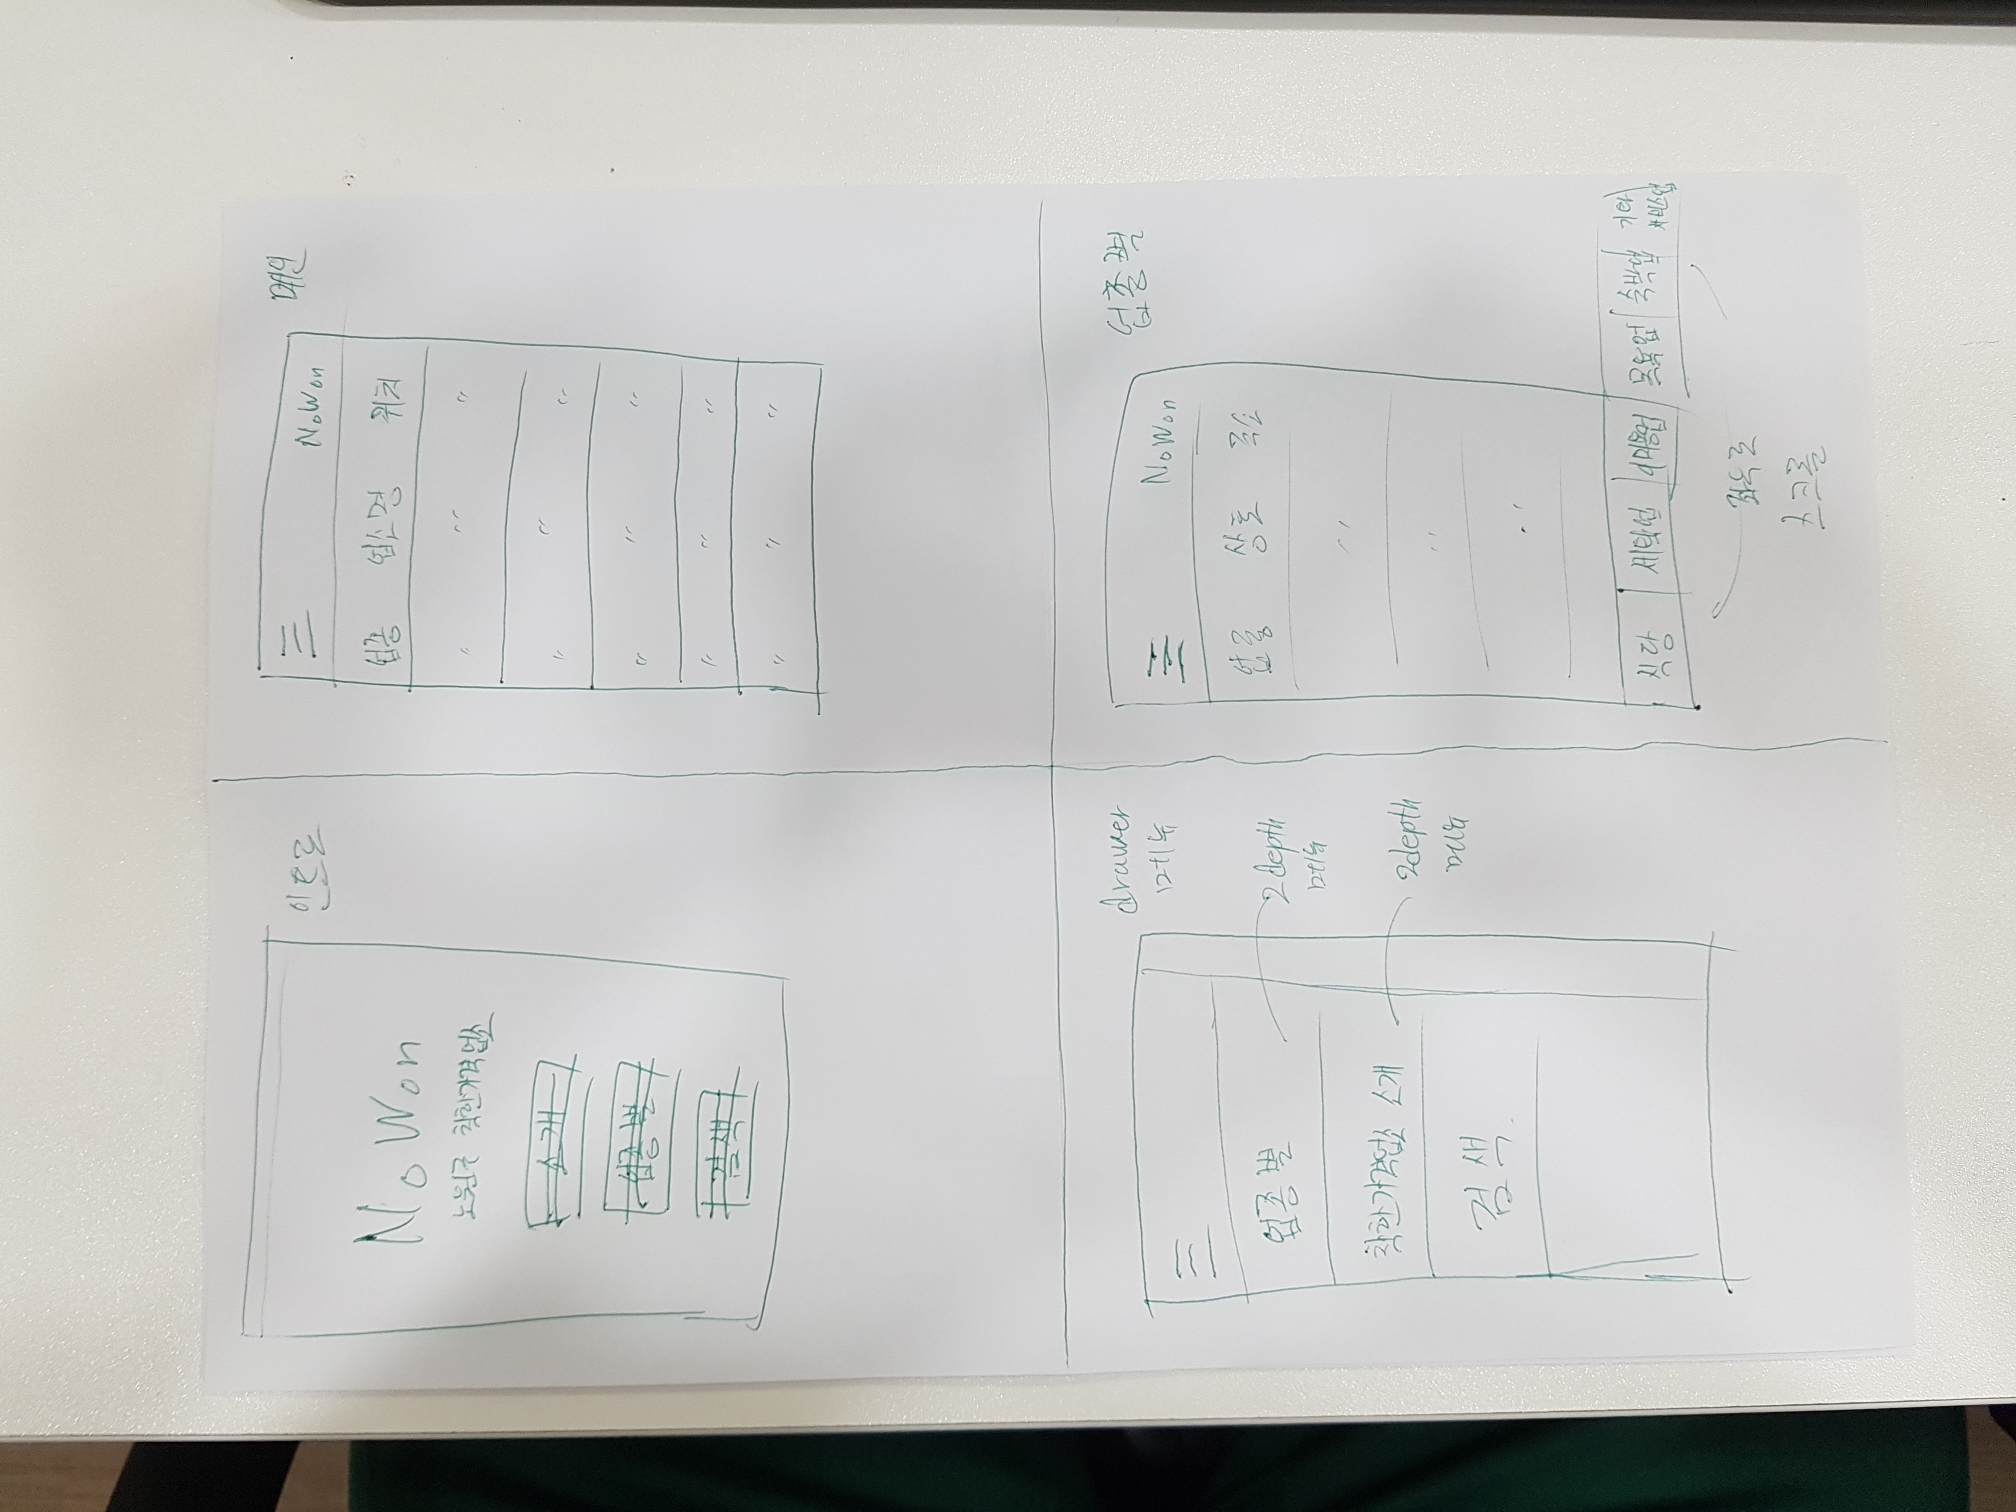 인트로
NoWon
노원구 착한가격업소
소개
업종별
검색
메인
NoWon
업종 업소명 위치
〃 〃 〃
〃 〃 〃
〃 〃 〃
〃 〃 〃
〃 〃 〃
drawer
메뉴
업종별
2depth
메뉴
착한가격업소 소개
2depth
메뉴
검색
업종별
NoWon
업종 상호 주소
〃
〃
〃
식당 세탁업 이미용업 목욕업 숙박업 기타
서비스업
좌우로
스크롤